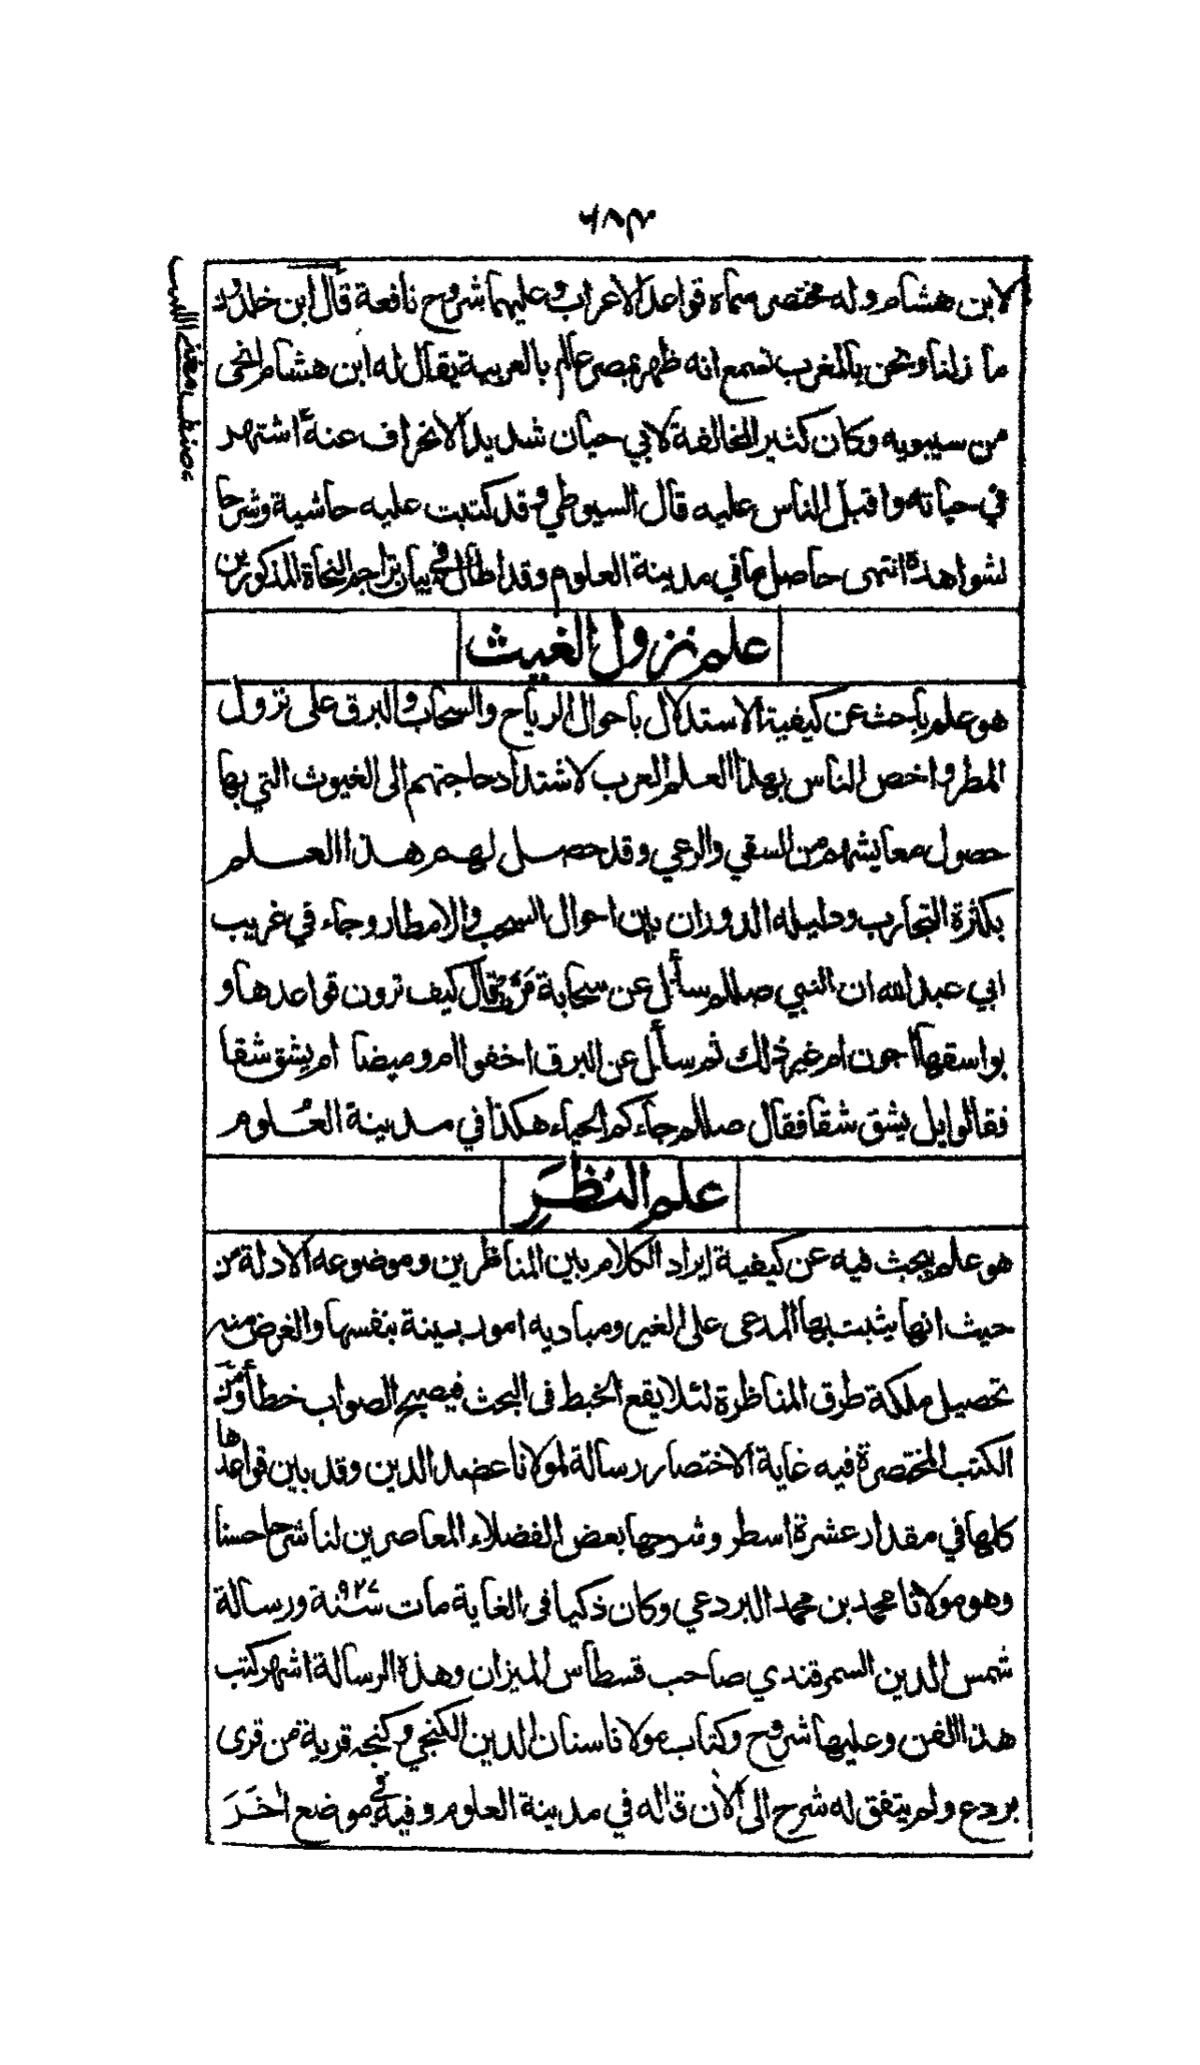 ٦٨٣
لابن هشام وله مختصر سماه قواعد الاعراب وعليهما شروح نافعة قال ابن خلدون
ما زلنا ونحن بالمغرب نسمع انه ظهر بمصر عالم بالعربية يقال له ابن هشام انحى
من سيبويه وكان كثير المخالفة لابي حيان شديد الانحراف عنه اشتهر
في حياته واقبل الناس عليه قال السيوطي وقد كتبت عليه حاشية وشرحا
لشواهده انتهى حاصل ما في مدينة العلوم وقد اطال في بيان تراجم النحاة المذكورين
علم نزول الغيث
هو علم باحث عن كيفية الاستدلال باحوال الرياح والسحاب والبرق على نزول
المطر واخص الناس بهذا العلم العرب لاشتداد حاجتهم الى الغيوث التي بها
حصول معايشهم من السقي والرعي وقد حصل لهم هذا العلم
بكثرة التجارب ودليله الدوران بين احوال السحب والامطار وجاء في غريب
ابي عبد الله ان النبي صللم سأل عن سحابة مرت فقال كيف ترون قواعدها و
بواسقها أجون ام غير ذلك ثم سأل عن البرق اخفوا ام وميضا ام يشق شقا
فقالوا بل يشق شقا فقال صللم جاءكم الحياء هكذا في مدينة العلوم
علم النظر
هو علم يبحث فيه عن كيفية ايراد الكلام بين المناظرين وموضوعه الادلة من
حيث انها يثبت بها المدعى على الغير ومباديه امور بينة بنفسها والغرض منه
تحصيل ملكة طرق المناظرة لئلا يقع الخبط في البحث فيصبح الصواب خطأ ومن
الكتب المختصرة فيه غاية الاختصار رسالة لمولانا عضد الدين وقد بين قواعدها
كلها في مقدار عشرة اسطر وشرحها بعض الفضلاء المعاصرين لنا شرحا حسنا
وهو مولانا محمد بن محمد البردعي وكان ذكيا في الغاية مات سنة ٩٢٧ ورسالة
شمس الدين السمرقندي صاحب قسطاس الميزان وهذه الرسالة اشهر كتب
هذا الفن وعليها شروح وكتاب مولانا سنان الدين الكنجي وكنجه قرية من قرى
بردع ولم يتفق له شرح الى الآن قاله في مدينة العلوم وفيه في موضع اخر